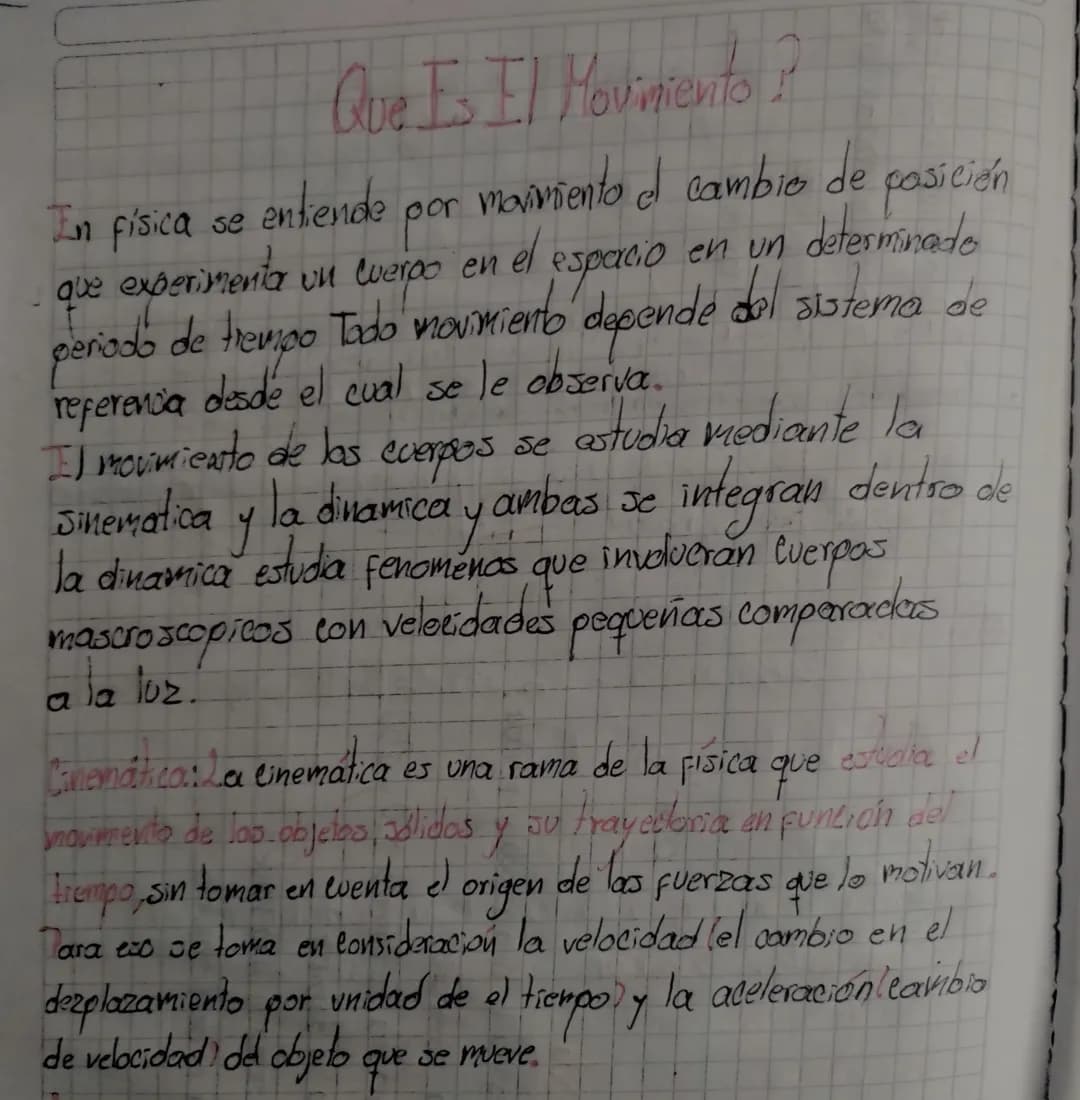 Que Es El Movimiento?
En física se entiende por movimiento el cambio de posición
que experimenta un cuerpo en el espacio en un determinado
periodo de tiempo Todo movimiento depende del sistema de
referencia desde el cual se le observa.
El movimiento de los cuerpos se estudia mediante la
sinematica y la dinamica y ambas se integran dentro de
la dinamica estudia fenomenos que involucran cuerpos
mascroscopicos con velocidades pequeñas comparadas
a la luz.
Cinemática: La cinemática es una rama de la física que estudia el
movimento de los objetos, sólidos y su trayectoria en función del
tiempo, sin tomar en cuenta el origen de las fuerzas que lo motivan.
Para eso se toma en consideración la velocidad (el cambio en el
dezplazamiento por unidad de el tiempo) y la aceleración (cambio
de velocidad) del objeto que se mueve.